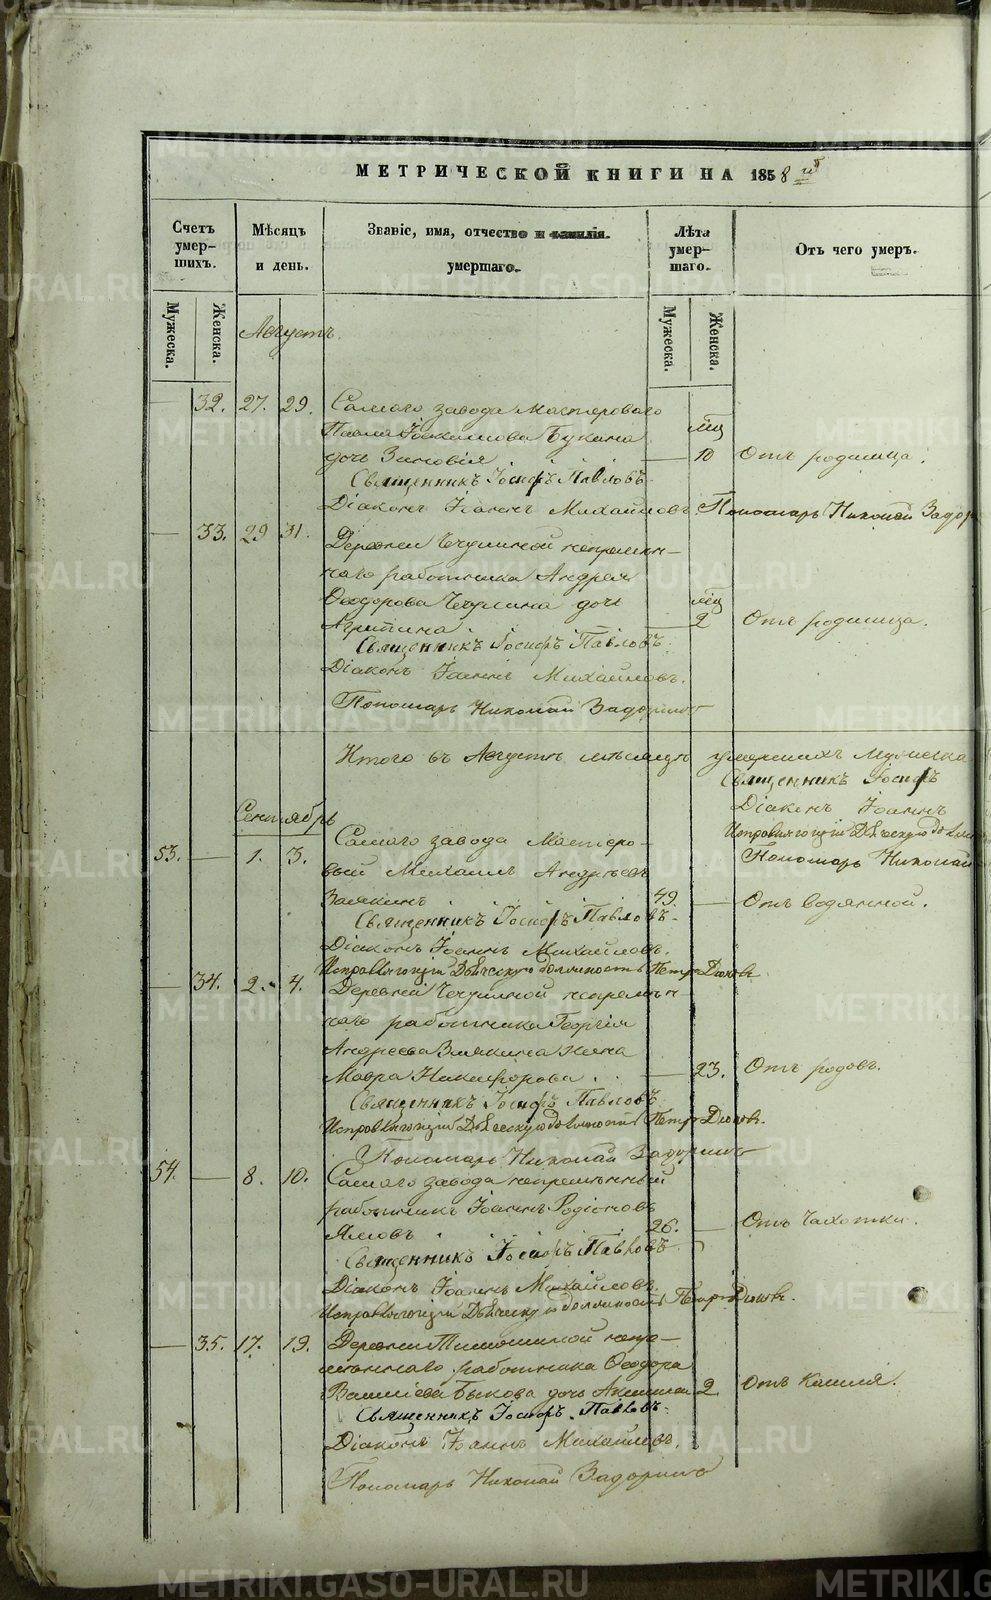 МЕТРИЧЕСКОЙ КНИГИ НА 1858 й
Счетъ умер-шихъ.
Мѣсяцъ и день.
Званіе, имя, отчество и фамилія умершаго.
Лѣта умер-шаго.
Отъ чего умеръ.
Мужеска.
Женска.
Мужеска.
Женска.
Августъ.
32. 27. 29. Самаго завода мастероваго
Павла Іоакимова Букина мц
дочь Зиновія 10 Отъ родимца.
Священникъ Іосифъ Павловъ.
Діаконъ Іоаннъ Михайловъ. Пономарь Николай
33. 29 31. Деревни Чечулиной непремѣн-
наго работника Андрея
Ѳеодорова Чечулина дочь мц
Агрипина 2 Отъ родимца.
Священникъ Іосифъ Павловъ.
Діаконъ Іоаннъ Михайловъ.
Пономарь Николай Задоринъ
Итого въ Августѣ мѣсяцѣ умершихъ мужеска
Священникъ Іосифъ
Діаконъ Іоаннъ
Сентябрь Исправляющій Дьяческую
Самаго завода мастеро-
53. 1. 3. Пономарь Николай
вый Михаилъ Андреевъ
49. Отъ водянной.
Священникъ Іосифъ Павловъ.
Діаконъ Іоаннъ Михайловъ.
Исправляющій Дьяческую должность Петръ
34. 2. 4. Деревни Чечулиной непремѣн-
наго работника Георгія
Андреева жена
Мавра Никифорова 23. Отъ родовъ.
Священникъ Іосифъ Павловъ
Исправляющій Дьяческую должность Петръ
Пономарь Николай Задоринъ
54. 8. 10. Самаго завода непремѣнный
работникъ Іоаннъ Родіоновъ
26. Отъ чахотки.
Священникъ Іосифъ Павловъ
Діаконъ Іоаннъ Михайловъ.
Исправляющій Дьяческую должность Петръ
35. 17. 19. Деревни непре-
мѣннаго работника Ѳеодора
Быкова дочь 2 Отъ кашля.
Священникъ Іосифъ Павловъ.
Діаконъ Іоаннъ Михайловъ.
Пономарь Николай Задоринъ
METRIKI.GASO-URAL.RU